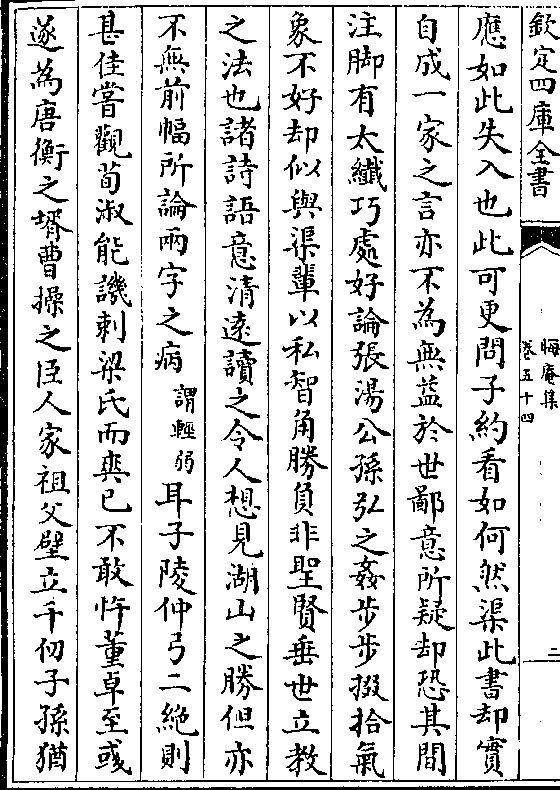 欽定四庫全書
晦庵集
卷五十四
二
應如此失入也此可更問子約看如何然渠此書却實
自成一家之言亦不為無益於世鄙意所疑却恐其間
注脚有太纎巧處好論張湯公孫弘之姦步步掇拾氣
象不好却似與渠輩以私智角勝負非聖賢垂世立教
之法也諸詩語意清遠讀之令人想見湖山之勝但亦
不無前幅所論兩字之病謂輕弱耳子陵仲弓二絶則
甚佳嘗觀荀淑能譏刺梁氏而爽已不敢忤董卓至彧
遂為唐衡之壻曹操之臣人家祖父壁立千仞子孫猶